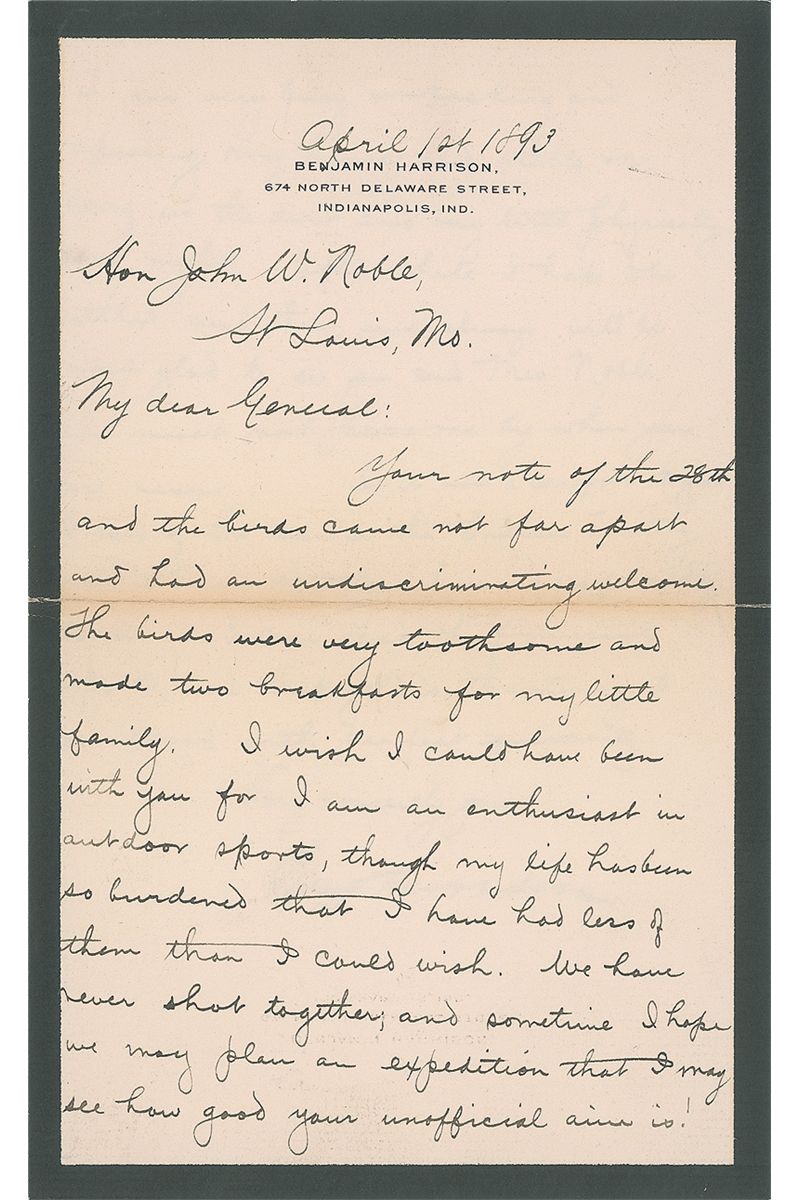 April 1st 1893
BENJAMIN HARRISON,
674 NORTH DELAWARE STREET,
INDIANAPOLIS, IND.
Hon John W. Noble,
St Louis, Mo.
My dear General:
Your note of the 28th
and the birds came not far apart
and had an undiscriminating welcome.
The birds were very toothsome and
made two breakfasts for my little
family. I wish I could have been
with you for I am an enthusiast in
outdoor sports, though my life has been
so burdened that I have had less of
them than I could wish. We have
never shot together; and sometime I hope
we may plan an expedition that I may
see how good your unofficial aim is!